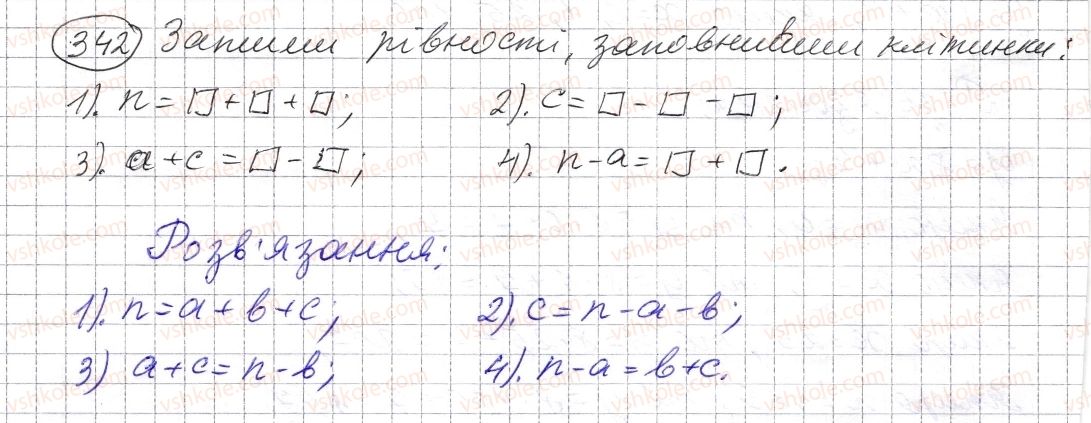 342 Запиши рівності, заповнивши клітинки:
1). n = □ + □ + □; 2). c = □ - □ - □;
3). a + c = □ - □; 4). n - a = □ + □.
Розв'язання:
1). n = a + b + c; 2). c = n - a - b;
3) a + c = n - b; 4). n - a = b + c.